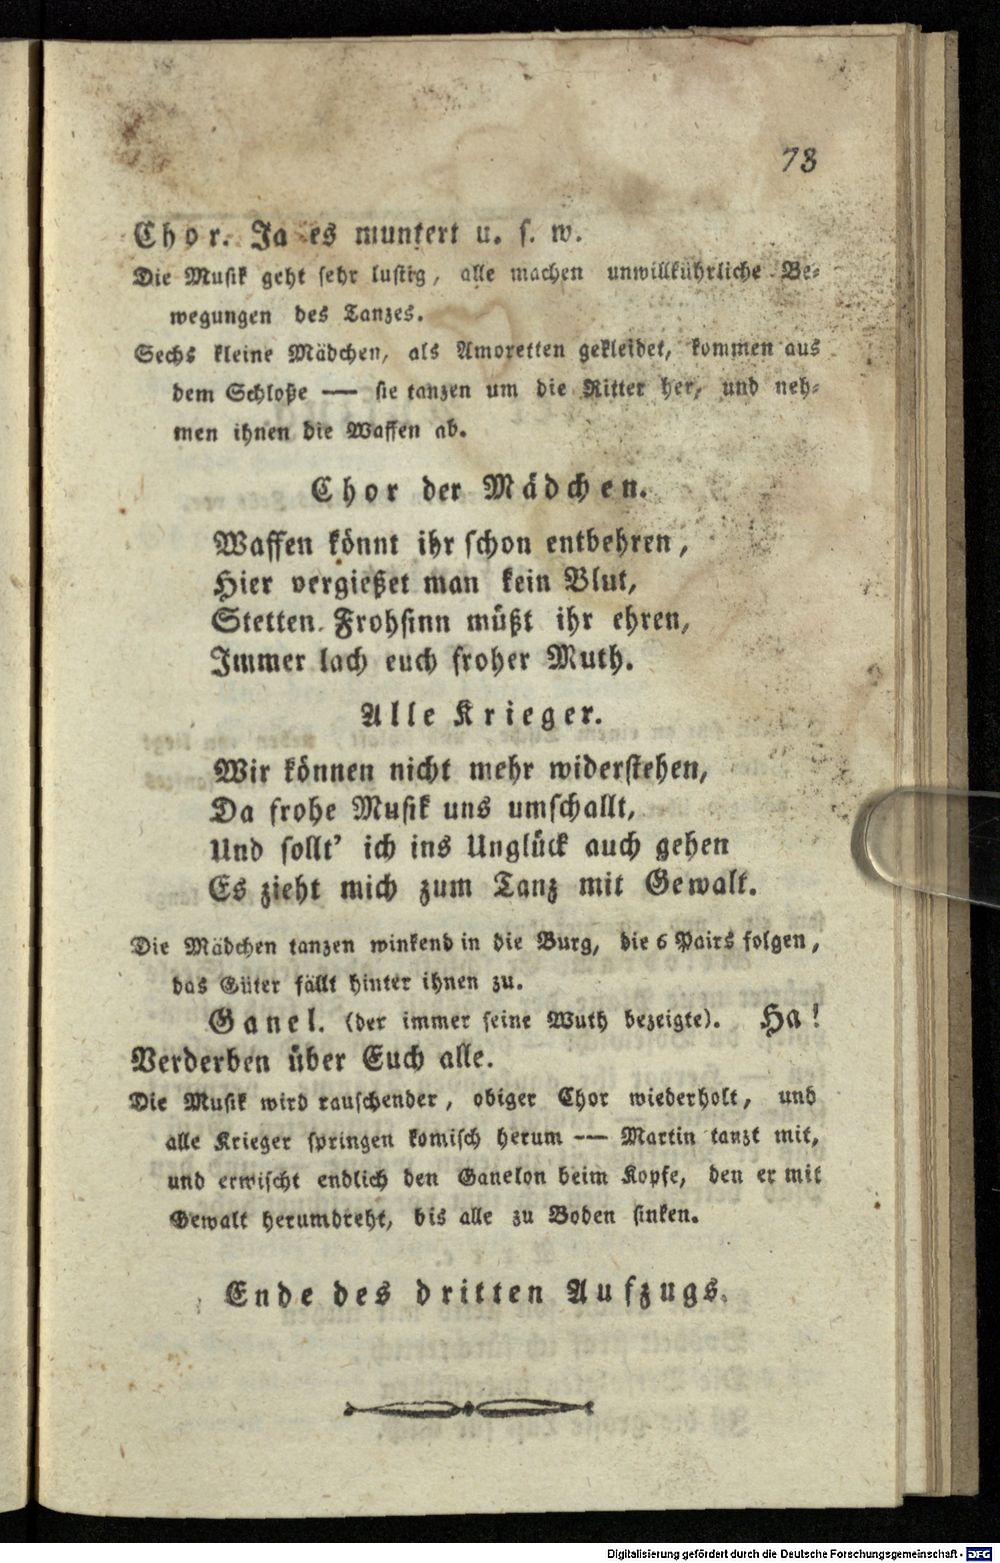 73
Chor. Ja es muntert u. s. w.
Die Musik geht sehr lustig, alle machen unwillkührliche Be-
wegungen des Tanzes.
Sechs kleine Mädchen, als Amoretten gekleidet, kommen aus
dem Schloße — sie tanzen um die Ritter her, und neh-
men ihnen die Waffen ab.
Chor der Mädchen.
Waffen könnt ihr schon entbehren,
Hier vergießet man kein Blut,
Stetten Frohsinn müßt ihr ehren,
Immer lach euch froher Muth.
Alle Krieger.
Wir können nicht mehr widerstehen,
Da frohe Musik uns umschallt,
Und sollt' ich ins Unglück auch gehen
Es zieht mich zum Tanz mit Gewalt.
Die Mädchen tanzen winkend in die Burg, die 6 Pairs folgen,
das Güter fällt hinter ihnen zu.
Ganel. (der immer seine Wuth bezeigte). Ha!
Verderben über Euch alle.
Die Musik wird rauschender, obiger Chor wiederholt, und
alle Krieger springen komisch herum — Martin tanzt mit,
und erwischt endlich den Ganelon beim Kopfe, den er mit
Gewalt herumdreht, bis alle zu Boden sinken.
Ende des dritten Aufzugs.
Digitalisierung gefördert durch die Deutsche Forschungsgemeinschaft - DFG